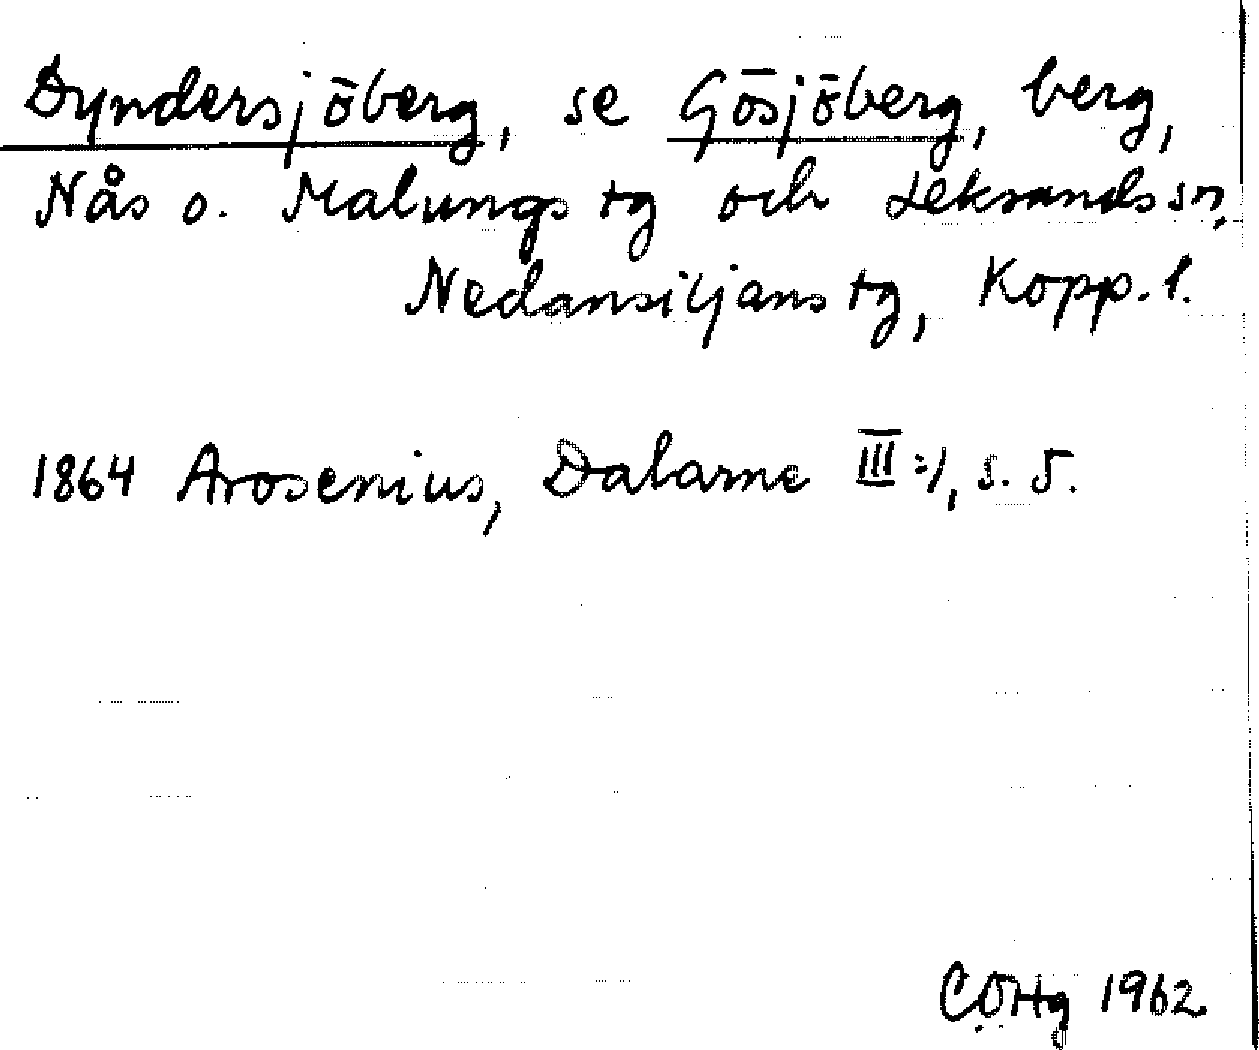 Dyndersjöberg, se Gösjöberg, berg,
Nås o. Malungs tg och Leksands sn,
Nedansiljans tg, Kopp. l.
1864 Arosenius, Dalarne III:1, s. 5.
CÖHg 1962